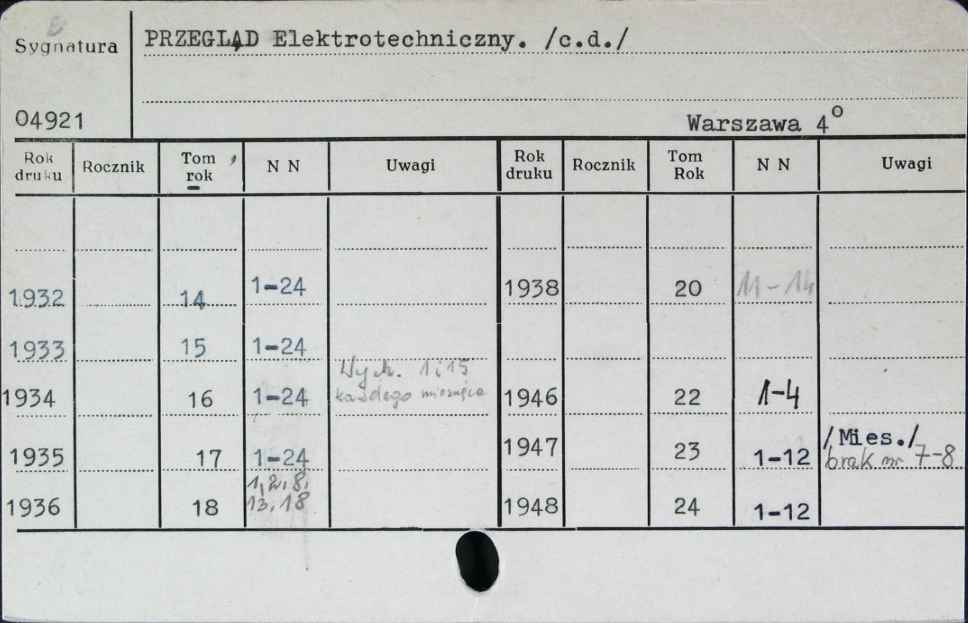 B
Sygnatura
PRZEGLĄD Elektrotechniczny. /c.d./
04921
Warszawa 4o
Rok druku Rocznik Tom, rok N N Uwagi Rok druku Rocznik Tom Rok N N Uwagi
1932 14 1-24 1938 20 11-14
1933 15 1-24
Wych. 1 i 15
1934 16 1-24 każdego miesiąca 1946 22 1-4
1935 17 1-24 1947 23 1-12 /Mies./
brak nr 7-8
1936 18 1,2,8, 13,18 1948 24 1-12